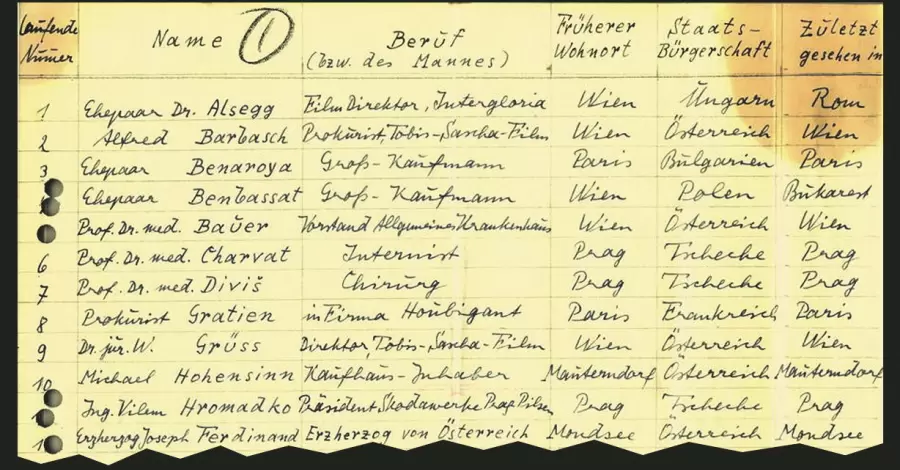 Laufende Numer Name 1 Beruf (bzw. des Mannes) Früherer Wohnort Staats-Bürgerschaft Zuletzt gesehen in
1 Ehepaar Dr. Alsegg Film Direktor, Intergloria Wien Ungarn Rom
2 Alfred Barbasch Prokurist, Tobis-Sascha-Film Wien Österreich Wien
3 Ehepaar Benaroya Groß-Kaufmann Paris Bulgarien Paris
Ehepaar Benbassat Groß-Kaufmann Wien Polen Bukarest
Prof. Dr. med. Bauer Vorstand Allgemeines Krankenhaus Wien Österreich Wien
6 Prof. Dr. med. Charvat Internist Prag Tscheche Prag
7 Prof. Dr. med. Diviš Chirurg Prag Tscheche Prag
8 Prokurist Gratien in Firma Houbigant Paris Frankreich Paris
9 Dr. jur. W. Grüss Direktor, Tobis-Sascha-Film Wien Österreich Wien
10 Michael Hohensinn Kaufhaus-Inhaber Mauterndorf Österreich Mauterndorf
Ing. Vilem Hromadko Präsident, Skodawerke Prag Pilsen Prag Tscheche Prag
1 Erzherzog Joseph Ferdinand Erzherzog von Österreich Mondsee Österreich Mondsee